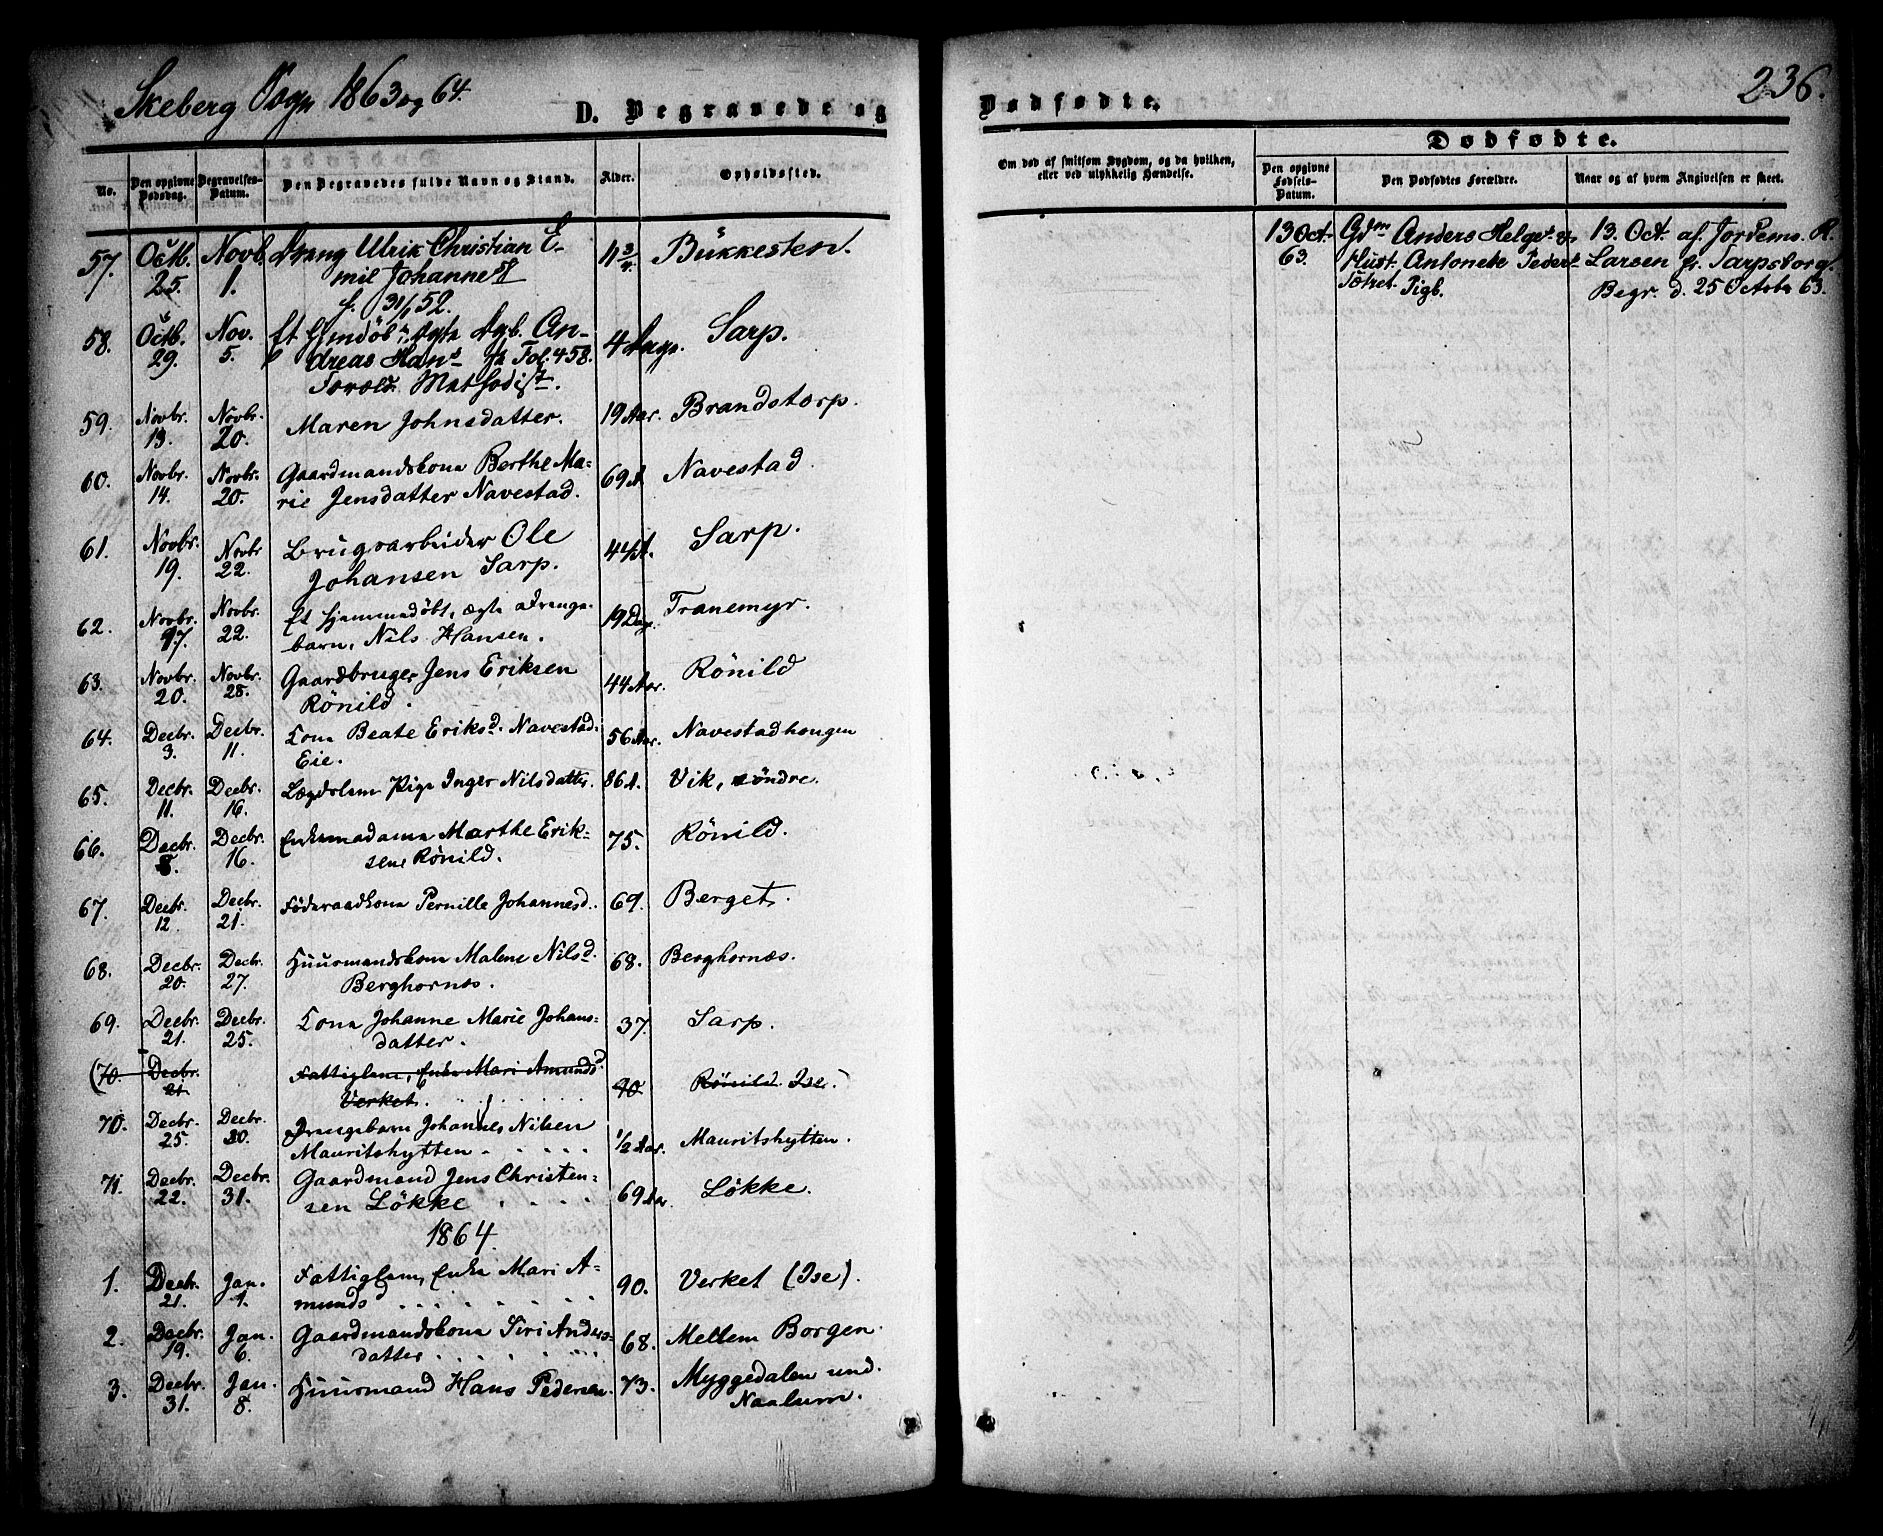 Skeberg Sogn 1863 og 64.
236.
D. Begravede og
Dødfødte.
No.
Den opgivne Dødsdag.
Begravelses-Datum.
Den Begravedes fulde Navn og Stand.
Alder.
Opholdssted.
Om død af smitsom Sygdom, og da hvilken, eller ved ulykkelig Hændelse.
Dødfødte.
Den opgivne Fødsels-Datum.
Den Dødfødtes Forældre.
Naar og af hvem Angivelsen er skeet.
57. Octb. 25. Novb. 1. Dreng Ulrik Christian E-
mil Johannes
f. 31/1 52. 11 3/4 Bükkesten.
58. Octb. 29. Nov. 5. Et hjmdöbt ægte Dgb. An-
dreas Hans fr Fol. 458.
Methodist. 4 Dage. Sarp.
59. Novbr. 13. Novbr. 20. Maren Johnsdatter. 19 Aar. Brandstorp.
60. Novbr. 14. Novbr. 20. Gaardmandskona Berthe Ma-
rie Jensdatter Navestad. 69 A Navestad.
61. Novbr. 19. Novbr 22. Brugsarbeider Ole
Johansen Sarp. 44 A. Sarp.
62. Novbr. 17. Novbr. 22. Et hjemmedøbt, ægte Drenge-
barn, Nils Hansen. 19 Dag. Tranemyr.
63. Novbr. 20. Novbr. 28. Gaardbruger Jens Eriksen
Rönild. 44 Aar. Rönild
64. Decbr. 3. Decbr. 11. Kona Beate Eriksd. Navestad-
Eie. 56 Aar. Navestadhaugen
65. Decbr. 11. Decbr. 16. Lægdslem Pige Inger Nilsdatter. 86 A. Vik, söndre.
66. Decbr. 8. Decbr. 16. Enkemadama Marthe Erik-
sen Rönild. 75. Rönild.
67. Decbr. 12. Decbr. 21. Föderaadkona Pernille Johannesd. 69. Berget.
68. Decbr. 20. Decbr. 27. Huusmandskona Malene Nilsd.
Berghornæs. 68. Berghornæs.
69. Decbr. 21. Decbr. 25. Kona Johanne Marie Johans-
datter. 37. Sarp.
(70. Decbr. 21 Fattiglem, Enke Mari Amundsd
Verket. 90 Rönild Ise.)
70. Decbr. 25. Decbr. 30. Drengebarn Johannes Nilsen
Mauritshytten. 1/2 Aar. Mauritshytten.
71. Decbr. 22. Decbr. 31. Gaardmand Jens Christen-
sen Lökke 69 Aar. Lökke.
1864
1. Decbr. 21. Jan. 1. Fattiglem, Enke Mari A-
mundsd 90. Verket (Ise).
2. Decbr. 19. Jan. 6. Gaardmandskona Siri Anders-
datter 68. Mellem Borgen.
3. Decbr. 31. Jan. 8. Huusmand Hans Pedersen. 73. Myggedalen und.
Naalum.
13 Oct. 63. Gdm Anders Helges. &
Hust. Antonete Peders.
Pigb.
13. Oct. af Jordem. R.
Larsen fr. Sarpsborg.
Begr. d. 25 October 63.